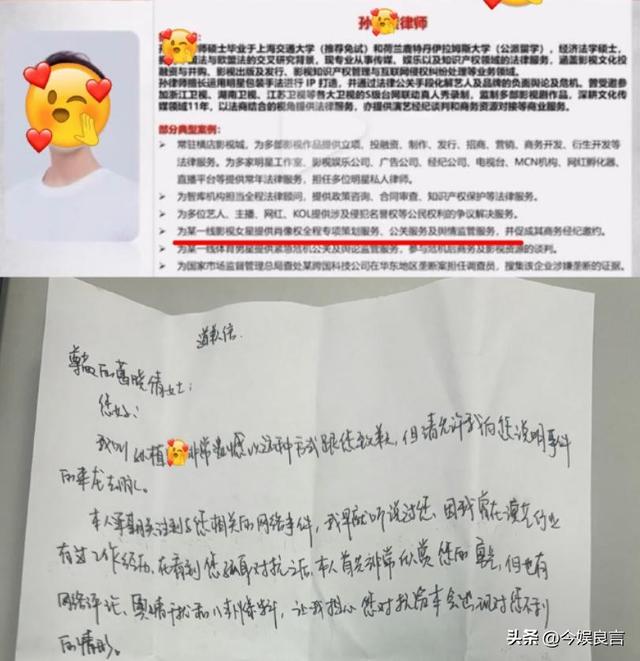 孙 律师
师硕士毕业于上海交通大学（推荐免试）和荷兰鹿特丹伊拉姆斯大学（公派留学），经济法学硕士，
法与欧盟法的交叉研究背景，现专业从事传媒、娱乐以及知识产权领域的法律服务，涵盖影视文化投
融资与并购、影视出版及发行、影视知识产权管理与互联网侵权纠纷处理等业务领域。
孙律师擅长运用明星包装手法进行 IP 打造，并通过法律公关手段化解艺人及品牌的负面舆论及危机。曾受邀参
加浙江卫视、湖南卫视、江苏卫视等各大卫视的S级台网联动真人秀录制，监制多部影视剧作品，深耕文化传
媒领域11年，以法商结合的视角提供法律服务，亦提供演艺经纪谈判和商务资源对接等商业服务。
部分典型案例：
常驻横店影视城，为多部影视作品提供立项、投融资、制作、发行、招商、营销、商务开发、衍生开发等
法律服务。为多家明星工作室、影视娱乐公司、广告公司、经纪公司、电视台、MCN机构、网红孵化器、
直播平台等提供常年法律服务，担任多位明星私人律师。
为智库机构担当全程法律顾问，提供政策咨询、合同审查、知识产权保护等法律服务。
为多位艺人、主播、网红、KOL提供涉及侵犯名誉权等公民权利的争议解决服务。
为某一线影视女星提供肖像权全程专项策划服务、公关服务及舆情监管服务，并促成其商务经纪邀约。
为某一线体育男星提供紧急危机公关及舆论监管服务，参与危机后商务及影视资源的谈判。
为国家市场监督管理总局查处某跨国科技公司在华东地区垄断案担任调查员，搜集该企业涉嫌垄断的证据。
道歉信
尊敬的葛晓倩女士：
您好！
我叫孙植 非常 以这种方式跟您致歉，但请允许我向您说明事件
的来龙去脉。
本人早期关注到与您相关的网络事件，我早就听说过您，因我曾在演艺行业
有过工作经历，在看到您 对抗之后，本人首先非常欣赏您的 ，但也有
网络评论、舆情干扰和八卦 ，让我担心您对 会出现对您不利
的情形。
头条 @今娱良言